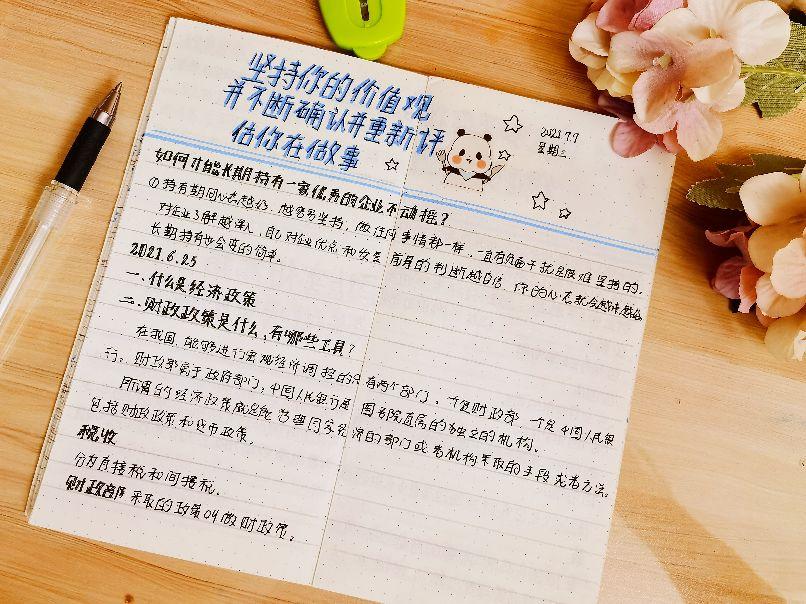 坚持你的价值观
并不断确认并重新评
估你在做事
2021.7.7
星期三
如何才能长期持有一家优秀的企业不动摇?
①持有期间心态越好,越容易坚持,做任何事情都一样,一直有负面干扰是很难坚持的.
对企业了解越深入,自己对企业优点和缺点 的判断越自信,你的心态就会越来越好
长期持有也会变的简单.
2021.6.25
一、什么是经济政策
二、财政政策是什么,有哪些工具?
在我国,能够进行宏观经济调控的只有两个部门,一个是财政部,一个是中国人民银
行。财政部属于政府部门,中国人民银行是国务院直属的独立的机构。
所谓的经济政策就是能管理国家经济的部门或者机构采取的手段或者方法。
包括财政政策和货币政策。
税收
分为直接税和间接税.
财政部采取的政策叫做财政政策。